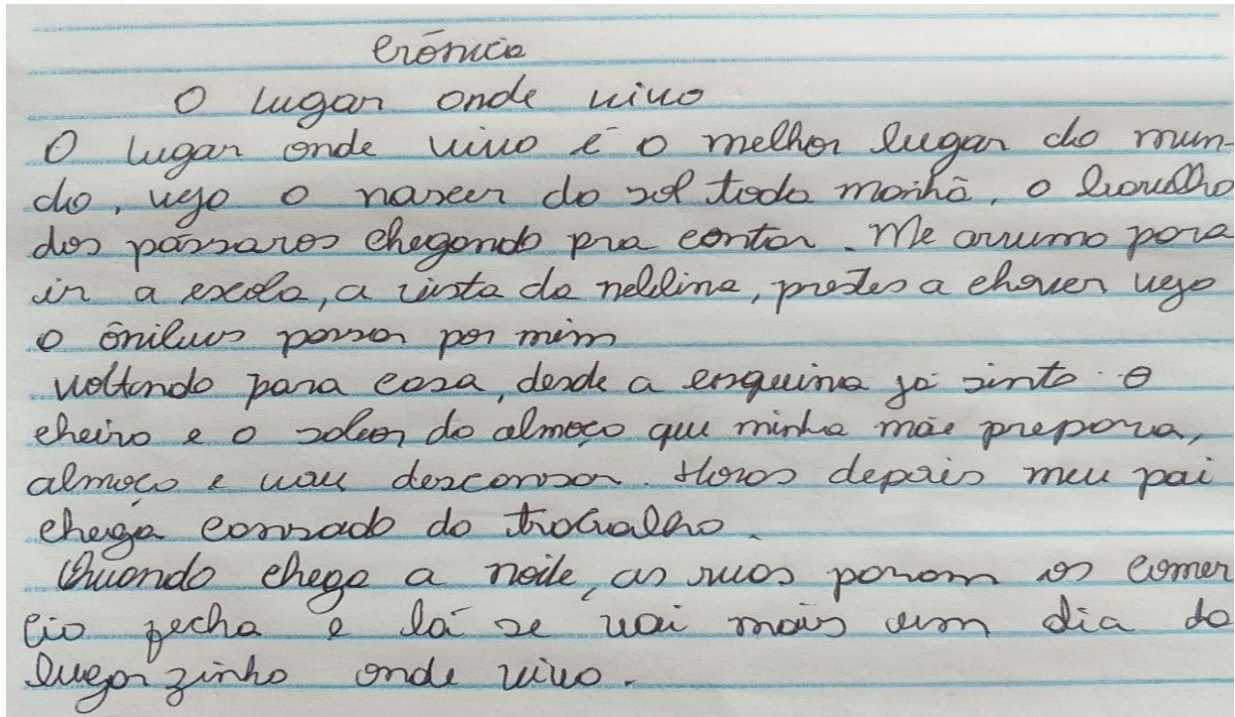 Crônica
O lugar onde vivo
O lugar onde vivo é o melhor lugar do mun-
do, vejo o nascer do sol toda manhã, o barulho
dos pássaros chegando pra contar. Me arrumo para
ir a escola, a vista da neblina, prestes a chover vejo
o ônibus passar por mim
voltando para casa, desde a esquina já sinto o
cheiro e o sabor do almoço que minha mãe prepara,
almoço e vou descansar. Horas depois meu pai
chega cansado do trabalho.
Quando chega a noite, as ruas param os comer
cio fecha e lá se vai mais um dia do
lugarzinho onde vivo.